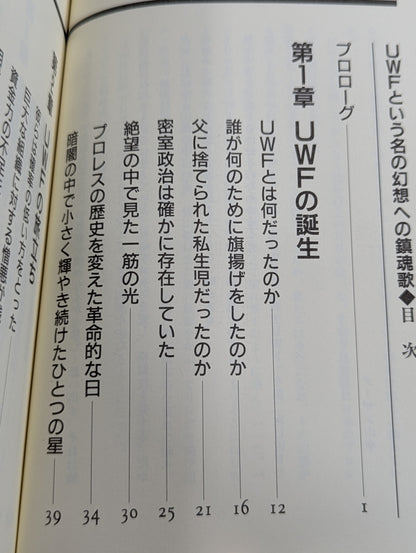 UWFという名の幻想への鎮魂歌◆目次
プロローグ 1
第1章 UWFの誕生
UWFとは何だったのか 12
誰が何のために旗揚げをしたのか 16
父に捨てられた私生児だったのか 21
密室政治は確かに存在していた 25
絶望の中で見た一筋の光 30
プロレスの歴史を変えた革命的な日 34
暗闇の中で小さく輝やき続けたひとつの星 39